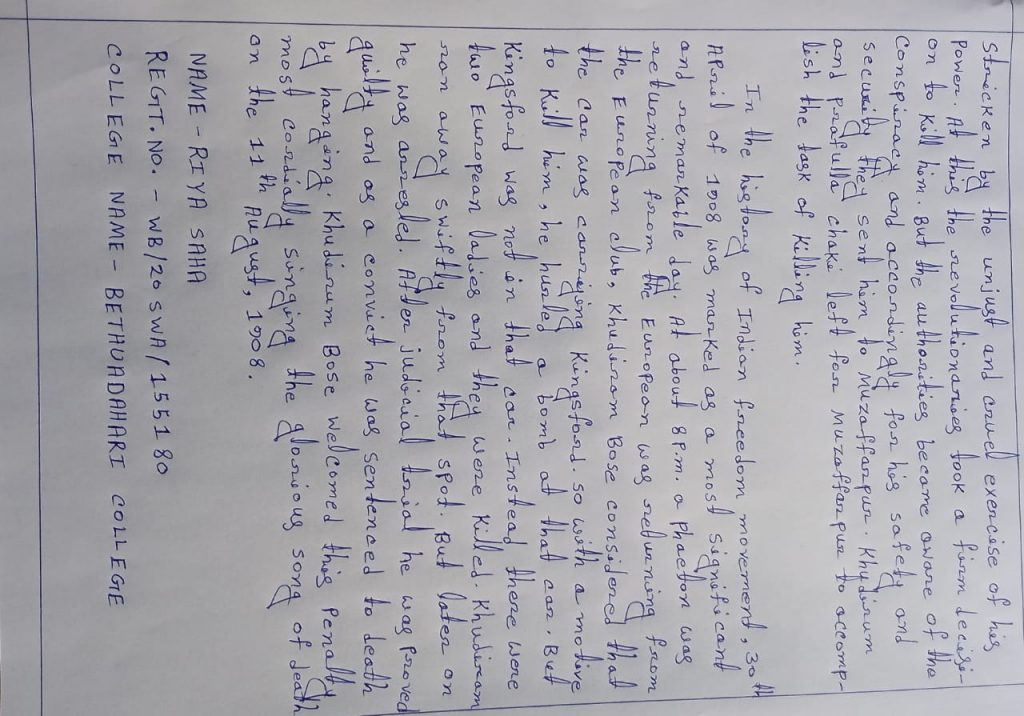 Stricken by the unjust and cruel exercise of his
Power. At this the revolutionaries took a firm decisi-
on to kill him. But the authorities became aware of the
Conspiracy and accordingly for his safety and
security they sent him to Muzaffarpur. Khudiram
and prafulla chaki left for Muzaffarpur to accomp-
lish the task of killing him.
In the history of Indian freedom movement, 30 th
APril of 1908 was marked as a most significant
and remarkable day. At about 8 p.m. a phaeton was
returning from the European was returning from
the European club, Khudiram Bose considered that
the car was carrying Kingsford. so with a motive
to kill him, he hurled a bomb at that car. But
Kingsford was not in that car. Instead there were
two European ladies and they were killed. Khudiram
ran away swiftly from that spot. But later on
he was arrested. After judicial trial he was proved
guilty and as a convict he was sentenced to death
by hanging. Khudiram Bose welcomed this penalty
most cordially singing the glorious song of death
on the 11th August, 1908.
NAME - RIYA SAHA
REGTT. NO. - WB/20 SWA/155180
COLLEGE NAME - BETHUADAHARI COLLEGE